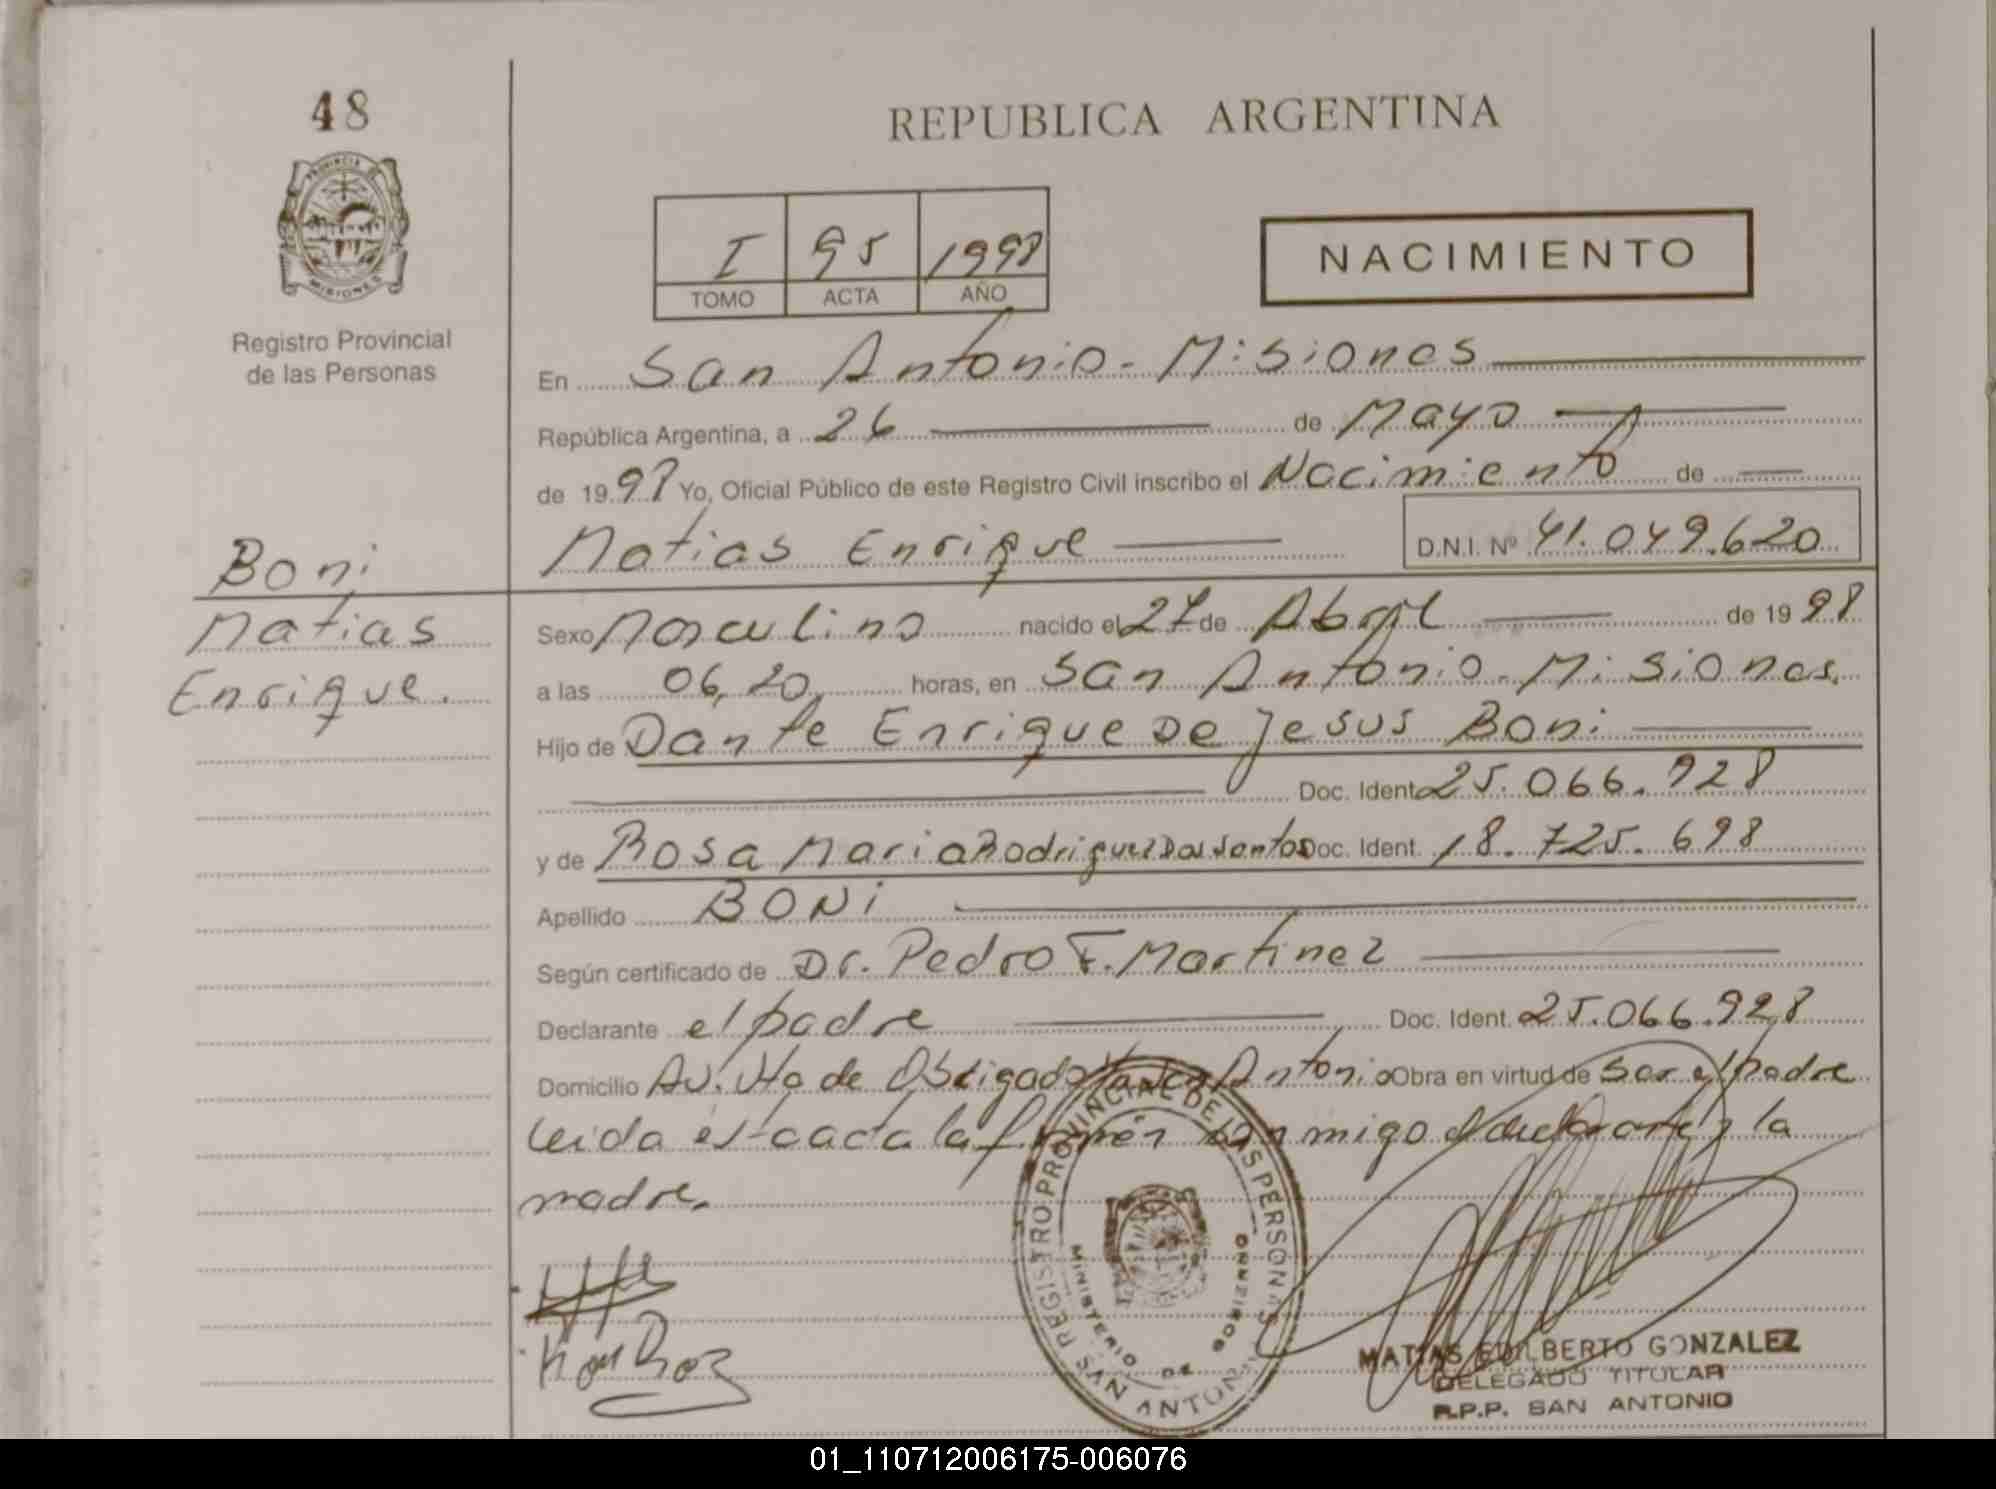 48
PROVINCIA DE
MISIONES
Registro Provincial
de las Personas
REPUBLICA ARGENTINA
I 95 1998
TOMO ACTA AÑO
NACIMIENTO
En San Antonio - Misiones
República Argentina, a 26 de Mayo
de 1998 Yo, Oficial Público de este Registro Civil inscribo el Nacimiento de
Matias Enrique D.N.I. Nº 41.049.620
Boni
Matias
Enrique.
Sexo Masculino nacido el 27 de Abril de 1998
a las 06,20 horas, en San Antonio - Misiones.
Hijo de Dante Enrique De Jesus Boni
Doc. Ident. 25.066.928
y de Rosa Maria Rodriguez Dos Santos Doc. Ident. 18.725.698
Apellido BONi
Según certificado de Dr. Pedro F. Martinez
Declarante el padre Doc. Ident. 25.066.928
Domicilio Av. Vta de Obligado San Antonio Obra en virtud de ser el padre
leida el acta la firman conmigo el declarante y la
madre.
REGISTRO PROVINCIAL DE LAS PERSONAS
MINISTERIO DE GOBIERNO
SAN ANTONIO
MATIAS EDILBERTO GONZALEZ
DELEGADO TITULAR
R.P.P. SAN ANTONIO
01_110712006175-006076